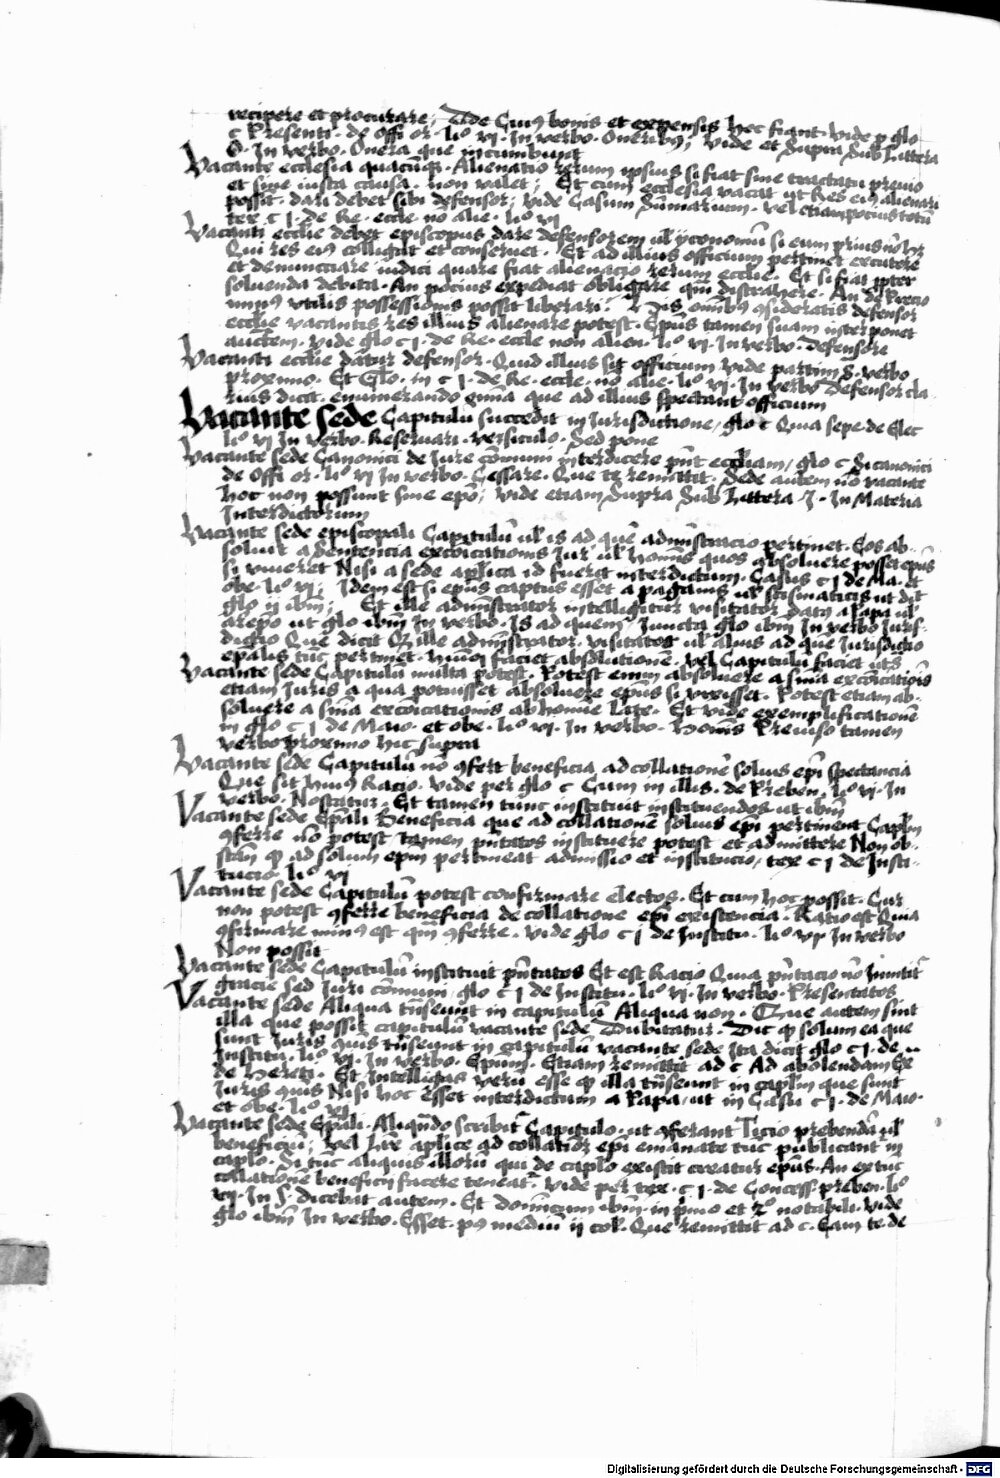 recipere et procurare; De Cuiꝰ bonis et expensis hoc fiant. vide p glo
c Presenti. de offi or. liº vi. In verbo. Oneribꝰ; vide et Supra Sub Littera
O. In verbo. Onera que incumbunt
Vacante ecclesia quacūqȝ. Alienatio rerum ipsius si fiat sine tractatu previo
et sine iusta causa. non valet; Et cum ecclesia vacat ut Res eiꝰ alienari
possit. dari debet sibi defensor; vide Casum Sūmarium. vel etiam pocius totū
tex c i. de Re. eccle. nō alie. liº vi
Vacanti ecclie debet episcopus dare defensorem ul̄ yconomū si eum prius nō hȝ
Qui res eiꝰ colligat et conservet. Et ad illius officium pertinet excutere
et denunciare iudici quare fiat alienacio rerum ecclie. Et si fiat ꝓpter
solvenda debita. An pocius expediat obligare qm̄ distrahere. An de Precio
minꝰ utilis possessionis possit liberari. His omībꝰ ꝯsideratis defensor
ecclie vacantis res illius alienare potest. Ep̄us tamen suam interponet
auctem. vide glo c i. de Re. eccle non alien. liº vi. In verbo. Defensore
Vacanti ecclie datur defensor. Quid illius sit officium vide partim s. verbo
proximo. Et Glo. in c i. de Re. eccle. nō alie. liº vi. In verbo Defensor cla-
rius dicit. enumerando omīa que ad illius spectant officium
Vacante sede Capitulū succedit in Jurisdictione, glo c Quia sepe. de Elec
liº vi In verbo. Reservari. versiculo. Sed pone
Vacante sede Canonici de Jure cōmuni interdicere pn̄t eccliam, glo c Si canonici
de offi or. liº vi In verbo. Cessare. Que te remittit. Sede autem nō vacante
hoc non possunt sine epō; vide etiam Supra Sub Littera .J. In Materia
Interdictorum
Vacante sede episcopali Capitulū ul̄ is ad quē admīstracio pertinet. Eos ab-
solvit a sentencia excōicationis Jur̄ ul̄ homīs quos absolvere posset epūs
si viveret Nisi a sede apl̄ica id fuerit interdictum. Casus c i de Ma. et
obe. liº vi; Idem est si epūs captus esset a paganis ul̄ scismaticis ut dit
glo ij ibm̄; Et ille admīstrator intelligitur visitator datꝰ a Papa ul̄
arepō ut glo ibm̄ In verbo. Is ad quem; Iuncta glo ibm̄ In verbo Juris-
dictio Quē dicit Qȝ ille admīstrator. visitator ul̄ alius ad quē Jurisdictio
epalis tūc pertinet. hmōi faciet absolutionē. vel Capitulū faciet ut s
Vacante sede Capitulū multa potest. Potest enim absolvere a sn̄ia excōicatiōis
etiam Juris a qua potuisset absolvere epūs si vixisset. Potest etiam ab-
solvere a sn̄ia excōicationis ab homīe late. Et vide exemplificationē
in glo c i de Maio. et obe. liº vi. In verbo. Homīs Previso tamen
verbo proximo hic supra
Vacante sede Capitulū nō ꝯfert beneficia ad collationē solius epī spectancia
Que sit huiꝰ Racio. vide per glo c Cum in illis. de Preben. liº vi. In
verbo. Noscatur. Et tamen tunc instituit instituendos ut ibm̄
Vacante sede Ep̄ali Beneficia que ad collationē solius epī pertinent Caplm̄
ꝯferre nō potest tamen pn̄tatos instituere potest et admittere Non ob-
stan̄ qȝ ad solum epm pertineat admissio et institucio, tex c i de Insti-
tucio. liº vi
Vacante sede Capitulū potest confirmare electos. Et cum hoc possit. Cur
non potest ꝯferre beneficia de collatione epī existencia. Ratio est Quia
ꝯfirmare minꝰ est qm̄ ꝯferre. vide glo c i de Institu. liº vi In verbo
Non possit
Vacante sede Capitulū instituit pn̄tatos Et est Racio Quia pn̄tacio nō Innitit̄
gracie sed Juri cōmuni, glo c i de Institu. liº vi. In verbo. Presentatos
Vacante sede Aliqua trāseunt in capitulū Aliqua non. Que autem sint
illa que possit capitulū vacante sede Dubitatur. Dic qȝ solum ea que
sunt Juris quis trāseunt in capitulū vacante sede Ita dicit glo c i. de
Institu. liº vi. In verbo. Epūm. Etiam remittit ad c Ad abolendam Ex
de Hereti. Et Intelligas verū esse qȝ illa trāseunt in caplm̄ que sunt
Juris quis Nisi hoc esset interdictum a Papa, ut in Casu c i. de Maio.
et obe. liº vi
Vacante sede Ep̄ali. Aliqn̄do scribit̄ Capitulo. ut ꝯferant Ticio prebendā ul̄
beneficiū; vel Lr̄e aplice ad collatiōȝ epī emanate tūc publicant in
caplo. Si tūc aliquis illorū qui de caplo existit creatur epūs. An ex tūc
collationē beneficij facere teneat̄. vide per tex. c i. de Concess. preben. liº
vi. In §. dicebat autem. Et domīcum ibm̄. in pmo et 2º notabili. vide
glo ibm̄ In verbo. Esset. pꝰ mediū ij col̄. Que remittit ad c. Eam te de
Digitalisierung gefördert durch die Deutsche Forschungsgemeinschaft - DFG